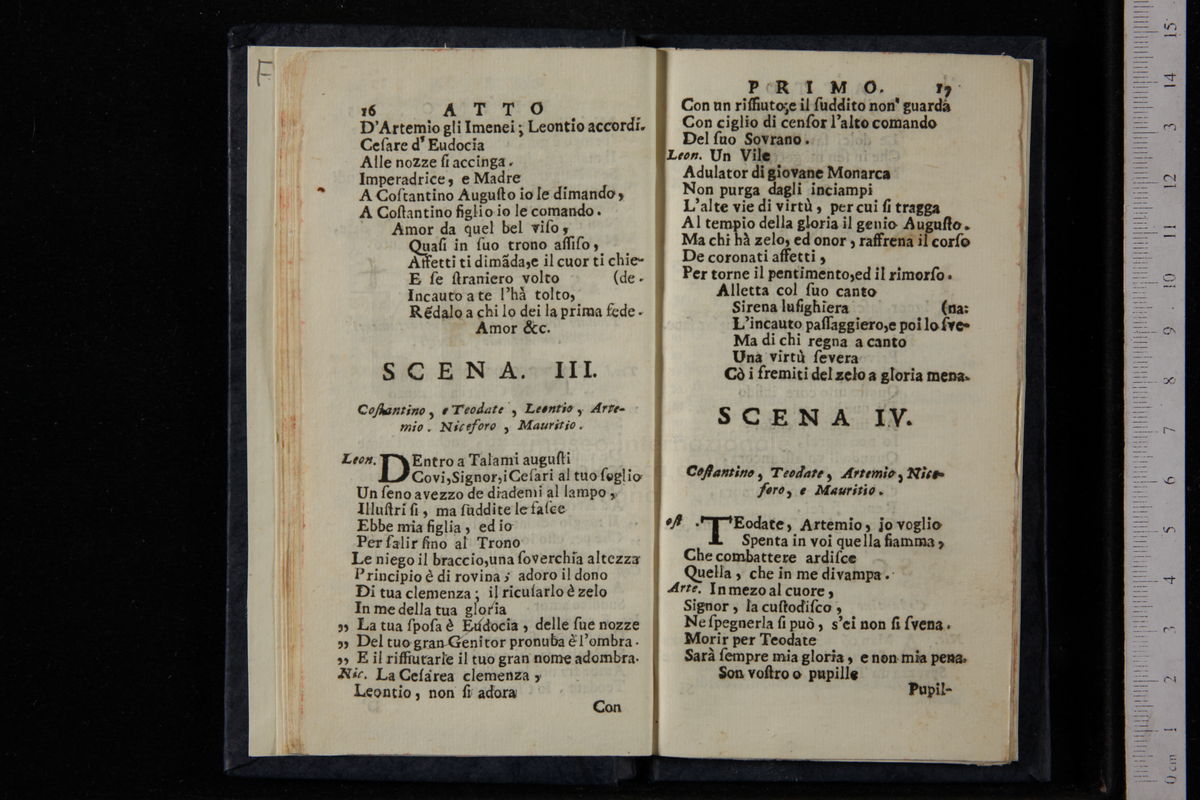 F
16 ATTO
D'Artemio gli Imenei; Leontio accordi.
Ceſare d'Eudocia
Alle nozze ſi accinga.
Imperadrice, e Madre
A Coſtantino Auguſto io le dimando,
A Coſtantino figlio io le comando.
Amor da quel bel viſo,
Quaſi in ſuo trono aſſiſo,
Affetti ti dimāda,e il cuor ti chie-
E ſe ſtraniero volto (de.
Incauto a te l'hà tolto,
Rēdalo a chi lo dei la prima fede.
Amor &c.
SCENA. III.
Coſtantino, e Teodate, Leontio, Arte-
mio. Niceforo, Mauritio.
Leon. DEntro a Talami auguſti
Covi,Signor,i Ceſari al tuo ſoglio
Un ſeno avezzo de diademi al lampo,
Illuſtri ſi, ma ſuddite le faſce
Ebbe mia figlia, ed io
Per ſalir fino al Trono
Le niego il braccio,una ſoverchia altezza
Principio è di rovina; adoro il dono
Di tua clemenza; il ricuſarlo è zelo
In me della tua gloria
„ La tua ſpoſa è Eudocia, delle ſue nozze
„ Del tuo gran Genitor pronuba è l'ombra.
„ E il riffiutarle il tuo gran nome adombra.
Nic. La Ceſarea clemenza,
Leontio, non ſi adora
Con
PRIMO. 17
Con un riffiuto;e il ſuddito non guarda
Con ciglio di cenſor l'alto comando
Del ſuo Sovrano.
Leon. Un Vile
Adulator di giovane Monarca
Non purga dagli inciampi
L'alte vie di virtù, per cui ſi tragga
Al tempio della gloria il genio Auguſto.
Ma chi hà zelo, ed onor, raffrena il corſo
De coronati affetti,
Per torne il pentimento,ed il rimorſo.
Alletta col ſuo canto
Sirena luſighiera (na:
L'incauto paſſaggiero,e poi lo ſve-
Ma di chi regna a canto
Una virtù ſevera
Cò i fremiti del zelo a gloria mena.
SCENA IV.
Coſtantino, Teodate, Artemio, Nice-
foro, e Mauritio.
oſt. TEodate, Artemio, io voglio
Spenta in voi quella fiamma,
Che combattere ardiſce
Quella, che in me divampa.
Arte. In mezo al cuore,
Signor, la cuſtodiſco,
Ne ſpegnerla ſi può, s'ei non ſi ſvena.
Morir per Teodate
Sarà ſempre mia gloria, e non mia pena.
Son voſtro o pupille
Pupil-
0 cm 1 2 3 4 5 6 7 8 9 10 11 12 13 14 15